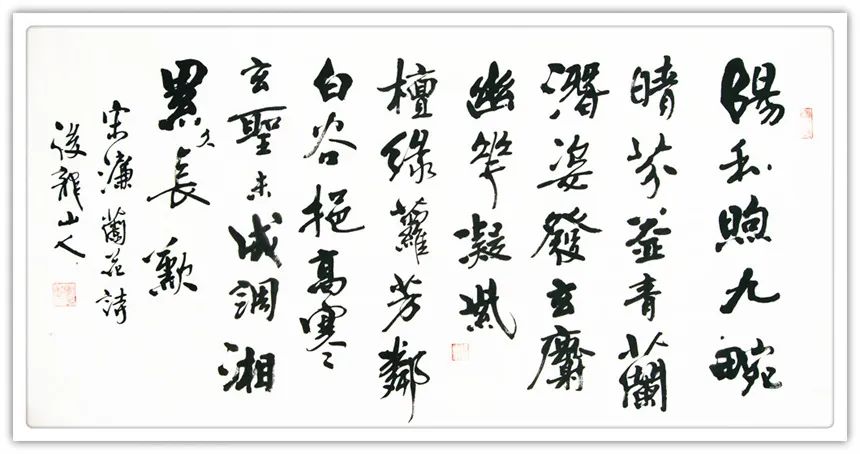 陽和煦九畹
晴芬益青蘭
潛姿發玄麝
幽華凝紫
檀綠蘿芳鄰
白谷挹高寒
玄聖未成調湘
累久長歎
宋濂蘭花詩
龍山人